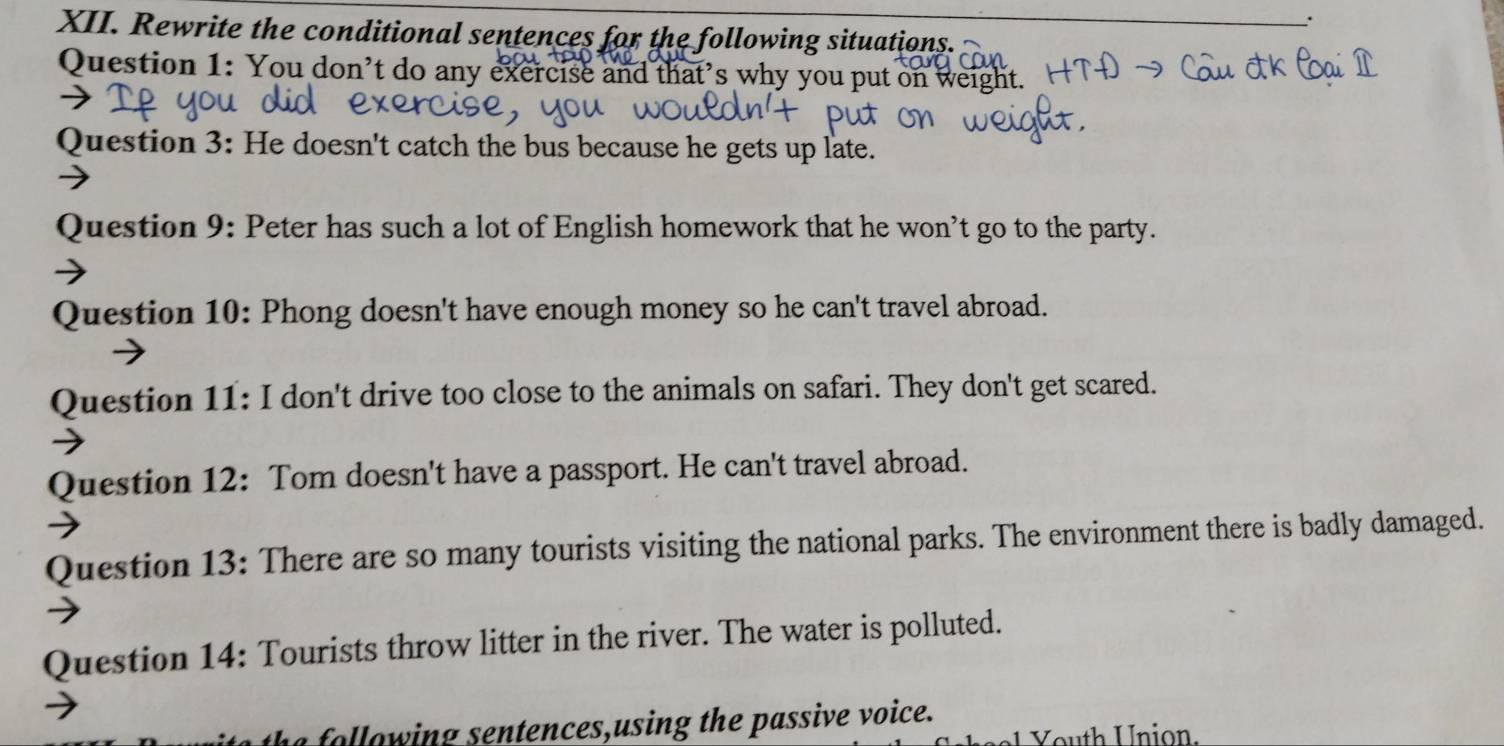 XII. Rewrite the conditional sentences for the following situations.
bài tập thể dục tăng cân
Question 1: You don’t do any exercise and that’s why you put on weight. HTĐ → Câu đk loại II
→ If you did exercise, you wouldn't put on weight.
Question 3: He doesn't catch the bus because he gets up late.
→
Question 9: Peter has such a lot of English homework that he won’t go to the party.
→
Question 10: Phong doesn't have enough money so he can't travel abroad.
→
Question 11: I don't drive too close to the animals on safari. They don't get scared.
→
Question 12: Tom doesn't have a passport. He can't travel abroad.
→
Question 13: There are so many tourists visiting the national parks. The environment there is badly damaged.
→
Question 14: Tourists throw litter in the river. The water is polluted.
→
the following sentences,using the passive voice.
Youth Union.